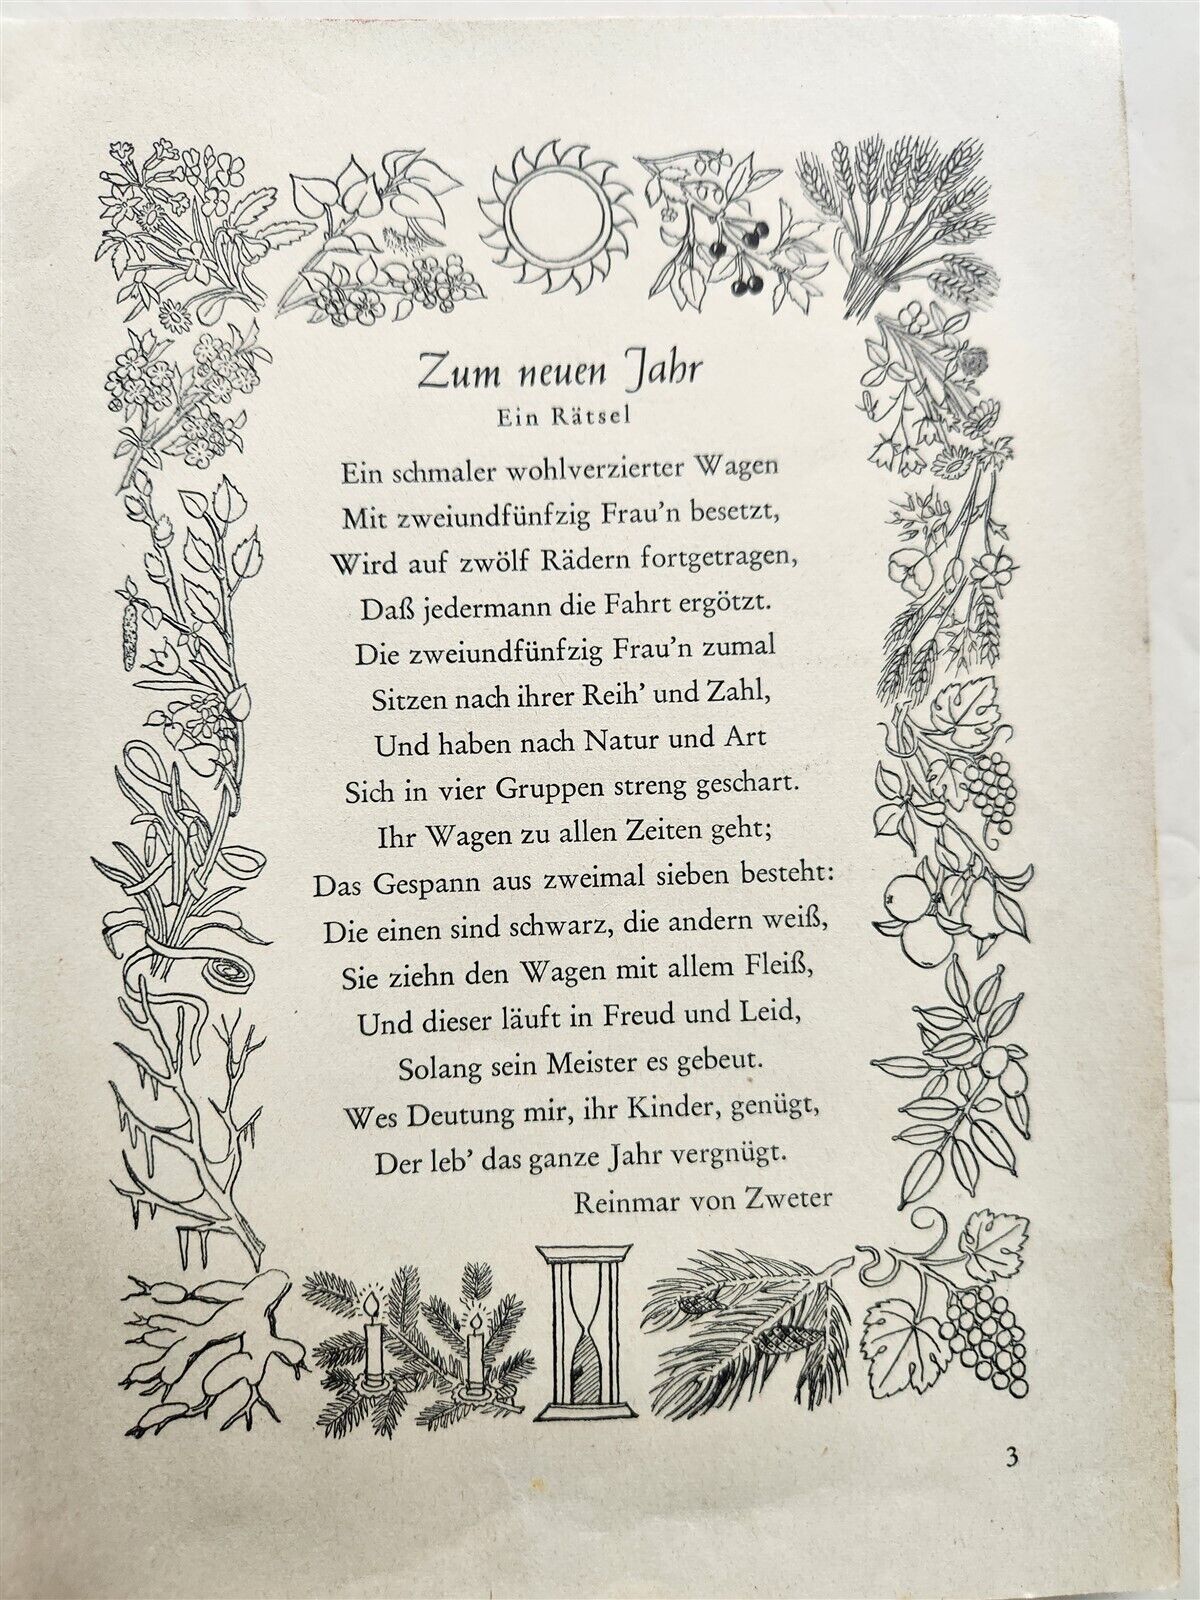 Zum neuen Jahr
Ein Rätsel
Ein schmaler wohlverzierter Wagen
Mit zweiundfünfzig Frau'n besetzt,
Wird auf zwölf Rädern fortgetragen,
Daß jedermann die Fahrt ergötzt.
Die zweiundfünfzig Frau'n zumal
Sitzen nach ihrer Reih' und Zahl,
Und haben nach Natur und Art
Sich in vier Gruppen streng geschart.
Ihr Wagen zu allen Zeiten geht;
Das Gespann aus zweimal sieben besteht:
Die einen sind schwarz, die andern weiß,
Sie ziehn den Wagen mit allem Fleiß,
Und dieser läuft in Freud und Leid,
Solang sein Meister es gebeut.
Wes Deutung mir, ihr Kinder, genügt,
Der leb' das ganze Jahr vergnügt.
Reinmar von Zweter
3